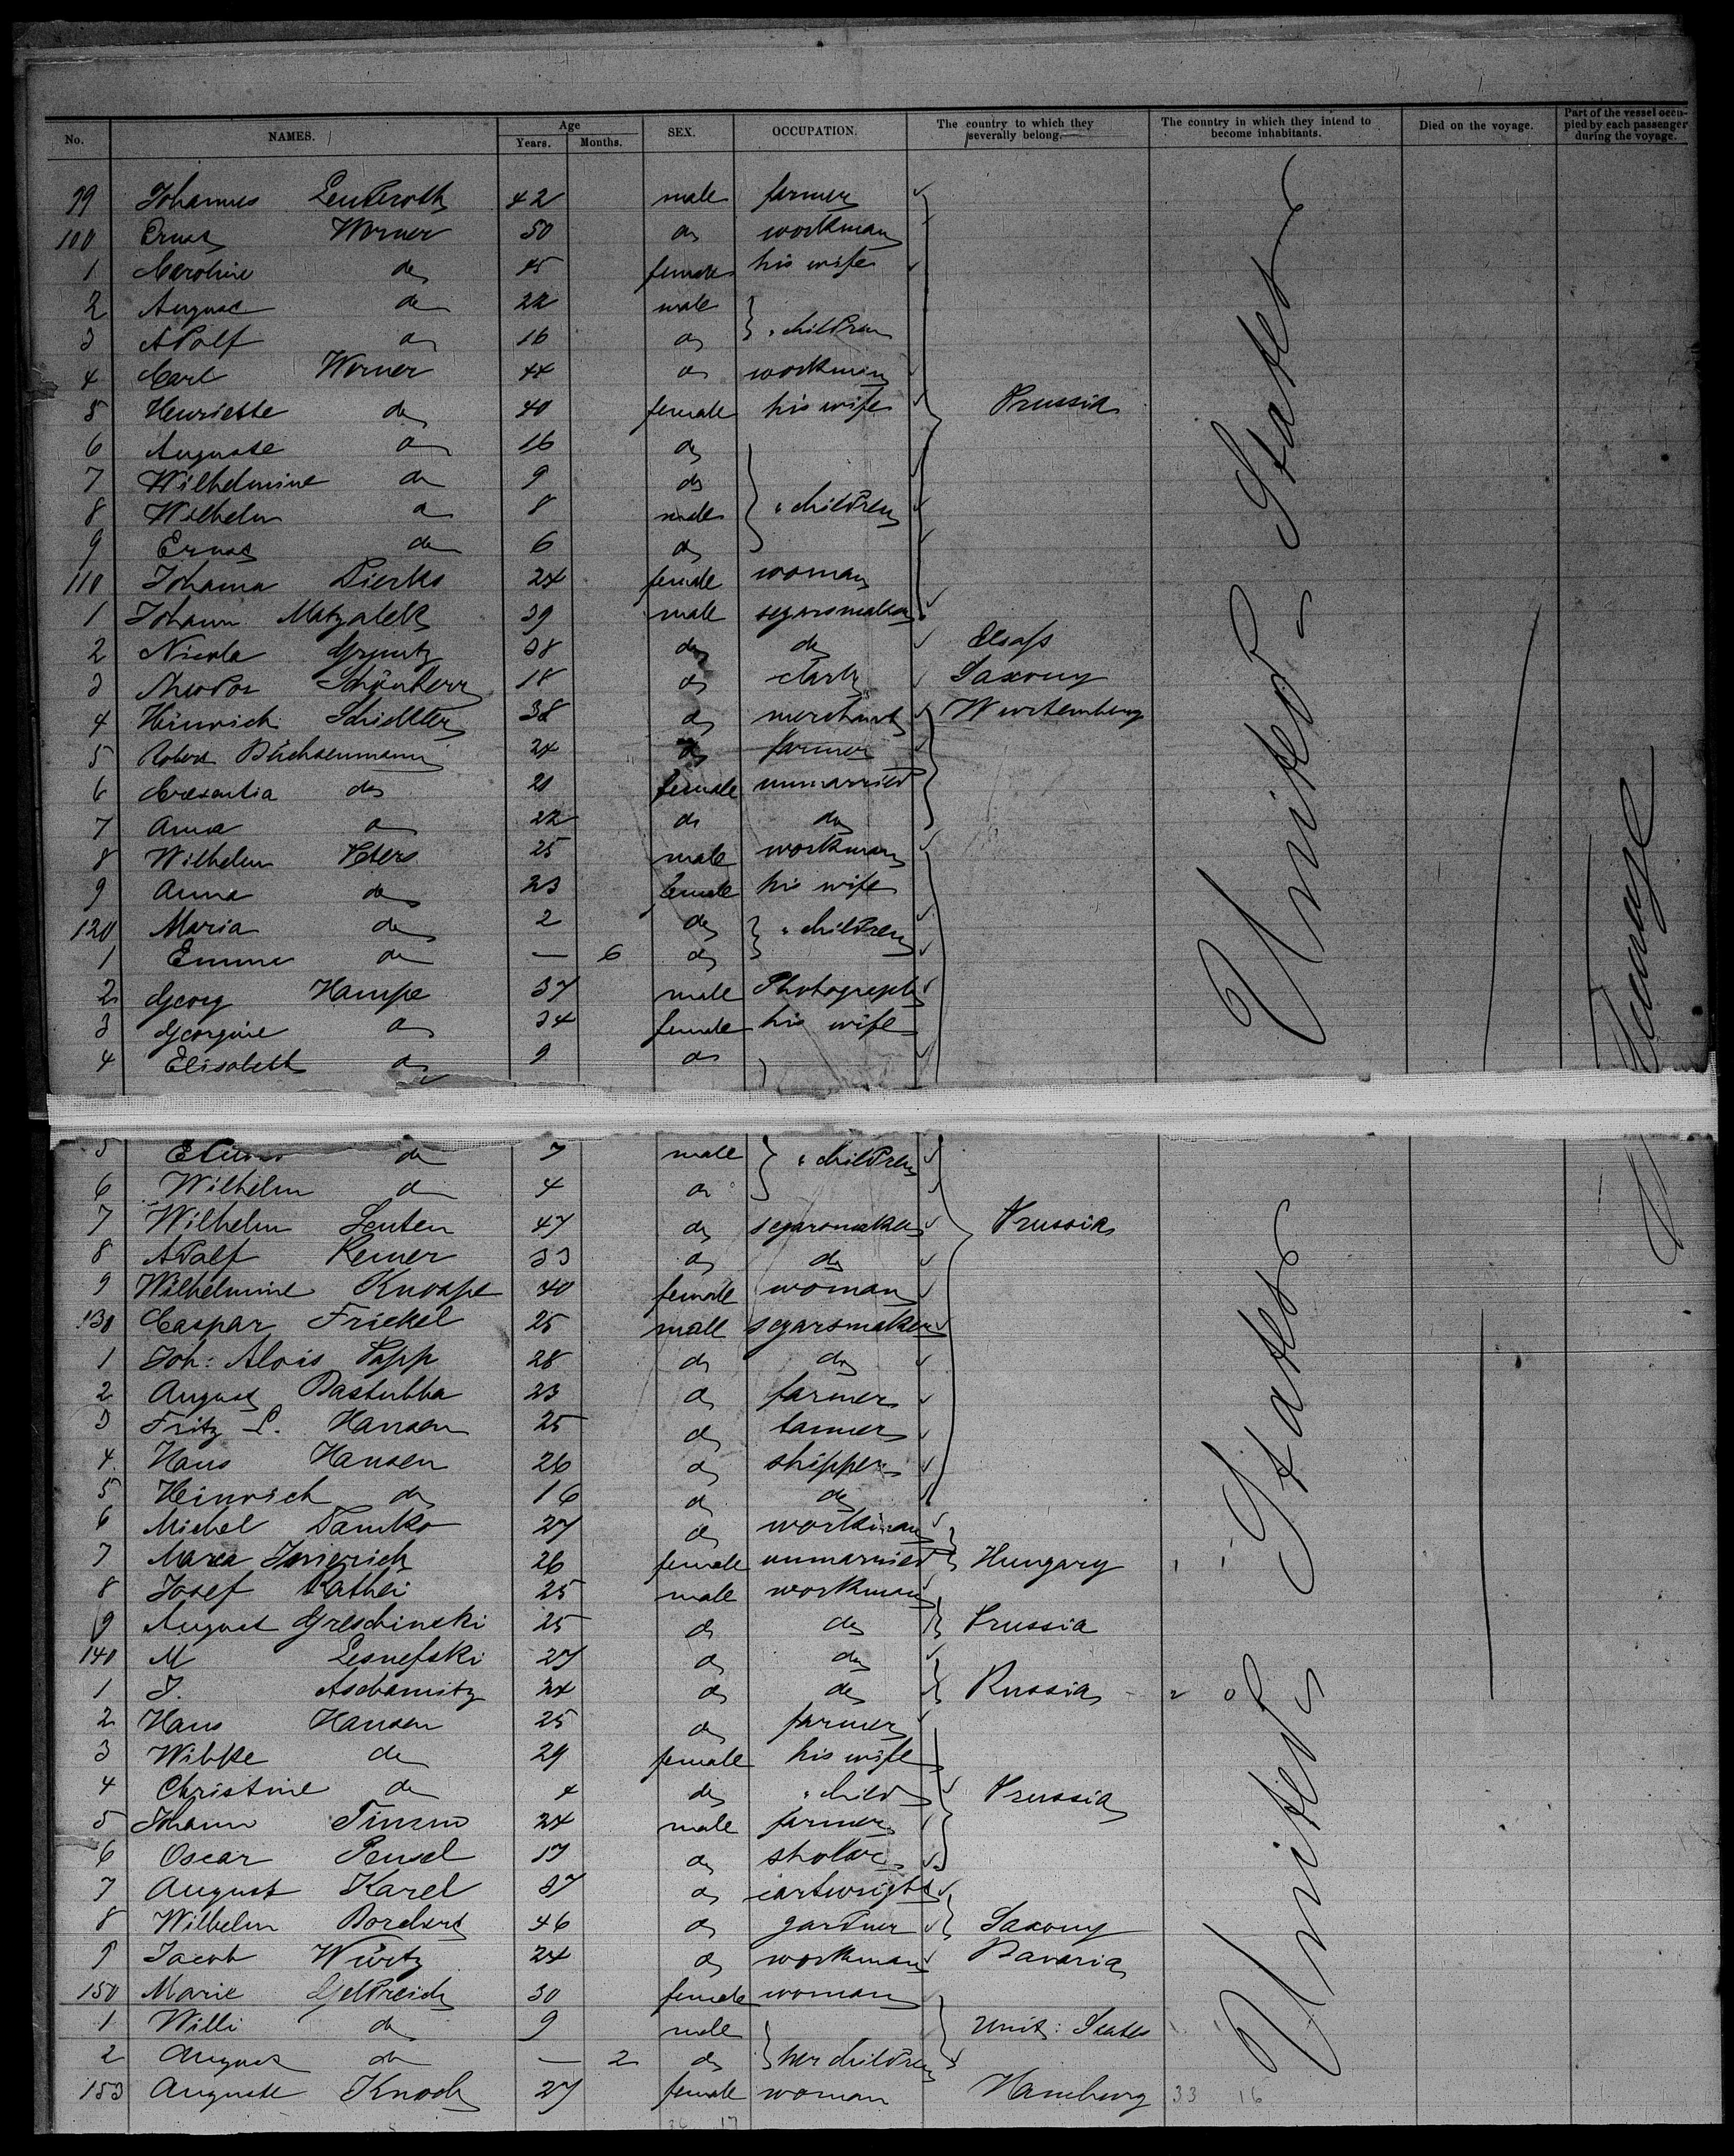 No. NAMES. Age Years. Months. SEX. OCCUPATION. The country to which they severally belong. The country in which they intend to become inhabitants. Died on the voyage. Part of the vessel occupied by each passenger during the voyage.
99 Johannes 42 male farmer
100 Ernst Werner 50 do workman
1 Caroline do 45 female his wife
2 August do 22 male
3 Adolf do 16 do children
4 Carl Werner 44 do workman
5 Henriette do 40 female his wife Prussia
6 Auguste do 16 do
7 Wilhelmine do 9 do
8 Wilhelm do 8 male children
9 Ernst do 6 do
110 Johanna Dierks 24 female woman
1 Johann Matzalek 39 male segarsmaker
2 Nicola 38 do do Elsaß
3 Theodor Schönherr 18 do clark Saxony
4 Heinrich 38 do merchant Wurtemberg
5 Robert 24 do farmer
6 Cresentia do 21 female unmarried
7 Anna do 22 do do
8 Wilhelm Peters 25 male workman
9 Anna do 23 female his wife
120 Maria do 2 do children
1 Emma do — 6 do
2 Georg Hampe 37 male Photograph
3 Georgine do 34 female his wife
4 Elisabeth do 9 do
United States
Steerage
5 do 7 male children
6 Wilhelm do 4 do
7 Wilhelm Leuten 47 do segarsmaker Prussia
8 Adolf Remer 33 do do
9 Wilhelmine Knospe 40 female woman
130 Caspar Frickel 25 male segarsmaker
1 Joh: Alois Papp 28 do do
2 August Dastubba 23 do farmer
3 Fritz L. Hansen 25 do tanner
4 Hans Hansen 26 do shipper
5 Heinrich do 16 do do
6 Michel Damko 27 do workman
7 26 female unmarried Hungary
8 Josef 25 male workman
9 August Greschinski 25 do do Prussia
140 M Lesnefski 27 do do
1 J. Aschamitz 24 do do Russia
2 Hans Hansen 25 do farmer
3 Wibke do 29 female his wife
4 Christine do 4 do child Prussia
5 Johann Timm 24 male farmer
6 Oscar Pensel 17 do
7 August Karel 37 do cartwright
8 Wilhelm Borchert 46 do gardner Saxony
9 Jacob Würtz 24 do workman Bavaria
150 Marie Geldreich 30 female woman
1 Willi do 9 male Unit: States
2 August do — 2 do her children
153 Auguste Knoch 27 female woman Hamburg 33 16
United States